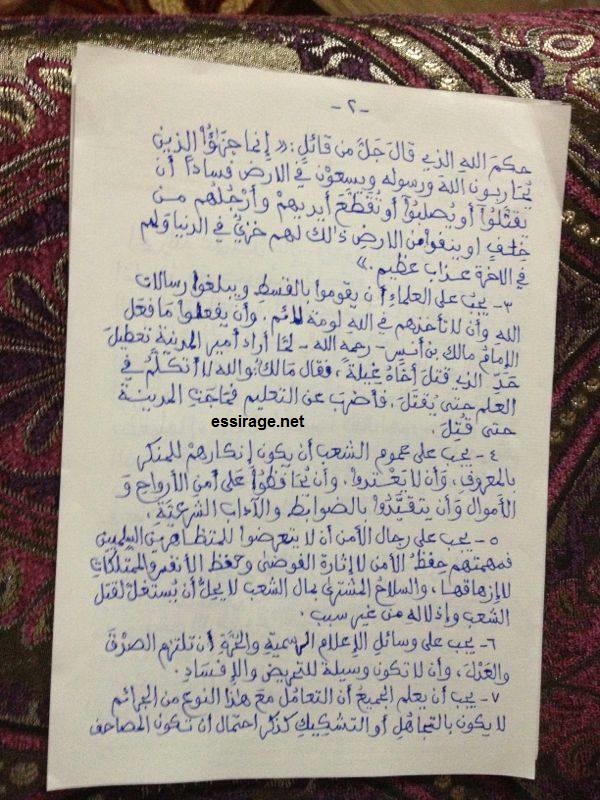 -٢-
حكمَ اللهِ الذي قالَ جَلَّ من قائلٍ: « إِنما جزَٰؤُاْ الذين
يُحَاربون اللهَ ورسوله ويسعَوْن في الارض فساداً أن
يقتَّلُواْ أو يُصلبُواْ أو تُقَطَّعَ أيديهمْ وأرْجُلُهم من
خِلَٰفٍ او ينفواْ من الارض ذٰلك لهم خزيٌ في الدنيا ولهم
في الآخرة عـذاب عظيم. »
٣- يجبُ على العلماءِ أن يقوموا بالقسطِ ويبلغوا رسالات
اللهِ وأن لا تأخذهم في اللهِ لومة لائم، وأن يفعلوا مَا فعل
الإمامُ مالك بن أنسٍ - رحمه الله - لمَّا أراد أمير المدينة تعطيلَ
حَدِّ الذي قتلَ أخَاهُ غِيلةً، فقال مَالكٌ: واللهِ لا أتكلَّمُ في
العلم حتى يُقتَلَ، فأضربَ عن التعليم فهَاجَتِ المدينة
حتى قُتِلَ.
essirage.net
٤- يجب على عموم الشعب أن يكون إنكارهمْ للمنكر
بالمعروف، وَأن لا تَعْتدوا، وأن يُحَافظُواْ على أمنِ الأرواحِ وَ
الأموال وَأن يتقيَّدُواْ بالضوابط والآداب الشرعيَّةِ.
٥- يجب على رجال الأمن أن لا يتعرضوا للمتظاهرين السلميين
فمهمتهم حِفظُ الأمن لا إثارة الفوضى وحفظ الأنفس والممتلكاتِ
لا إزهاقهـا، والسلاحُ المشترى بمال الشعب لا يحِلُّ أن يُستغلَّ لقتل
الشعب وإذلاله من غير سبب.
٦- يجب على وسائلِ الإعلام الرسميةِ والحُرَّةِ أن تلتزم الصدْقَ
والعَدْلَ، وأن لا تكون وسيلة للتحريض والإفسَادِ.
٧- يجب أن يعلم الجميعُ أن التعامُل مَعَ هذا النوع من الجرائم
لا يكون بالتجاهُلِ أو التشكيكِ كذكر احتمال أن تكون المصاحف